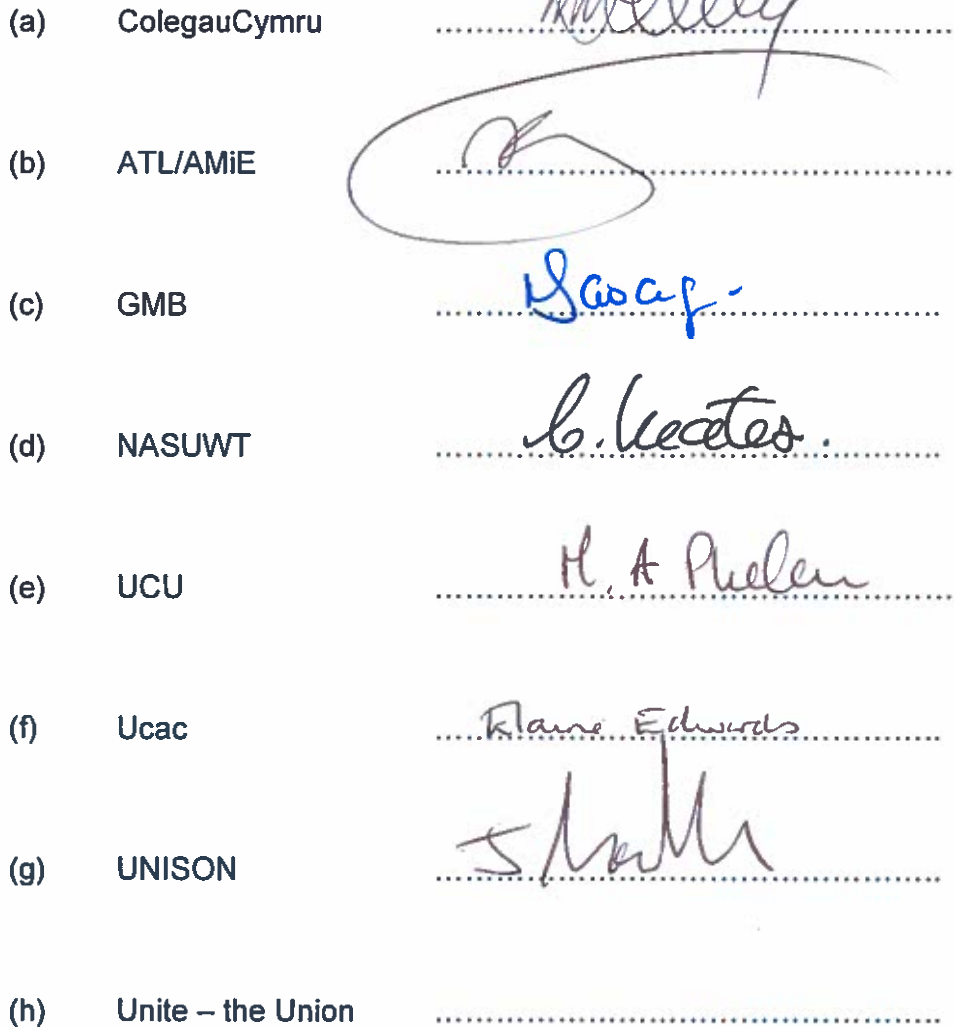 (a) ColegauCymru
(b) ATL/AMiE
(c) GMB
(d) NASUWT
(e) UCU M. A Phelan
(f) Ucac Elaine Edwards
(g) UNISON
(h) Unite – the Union